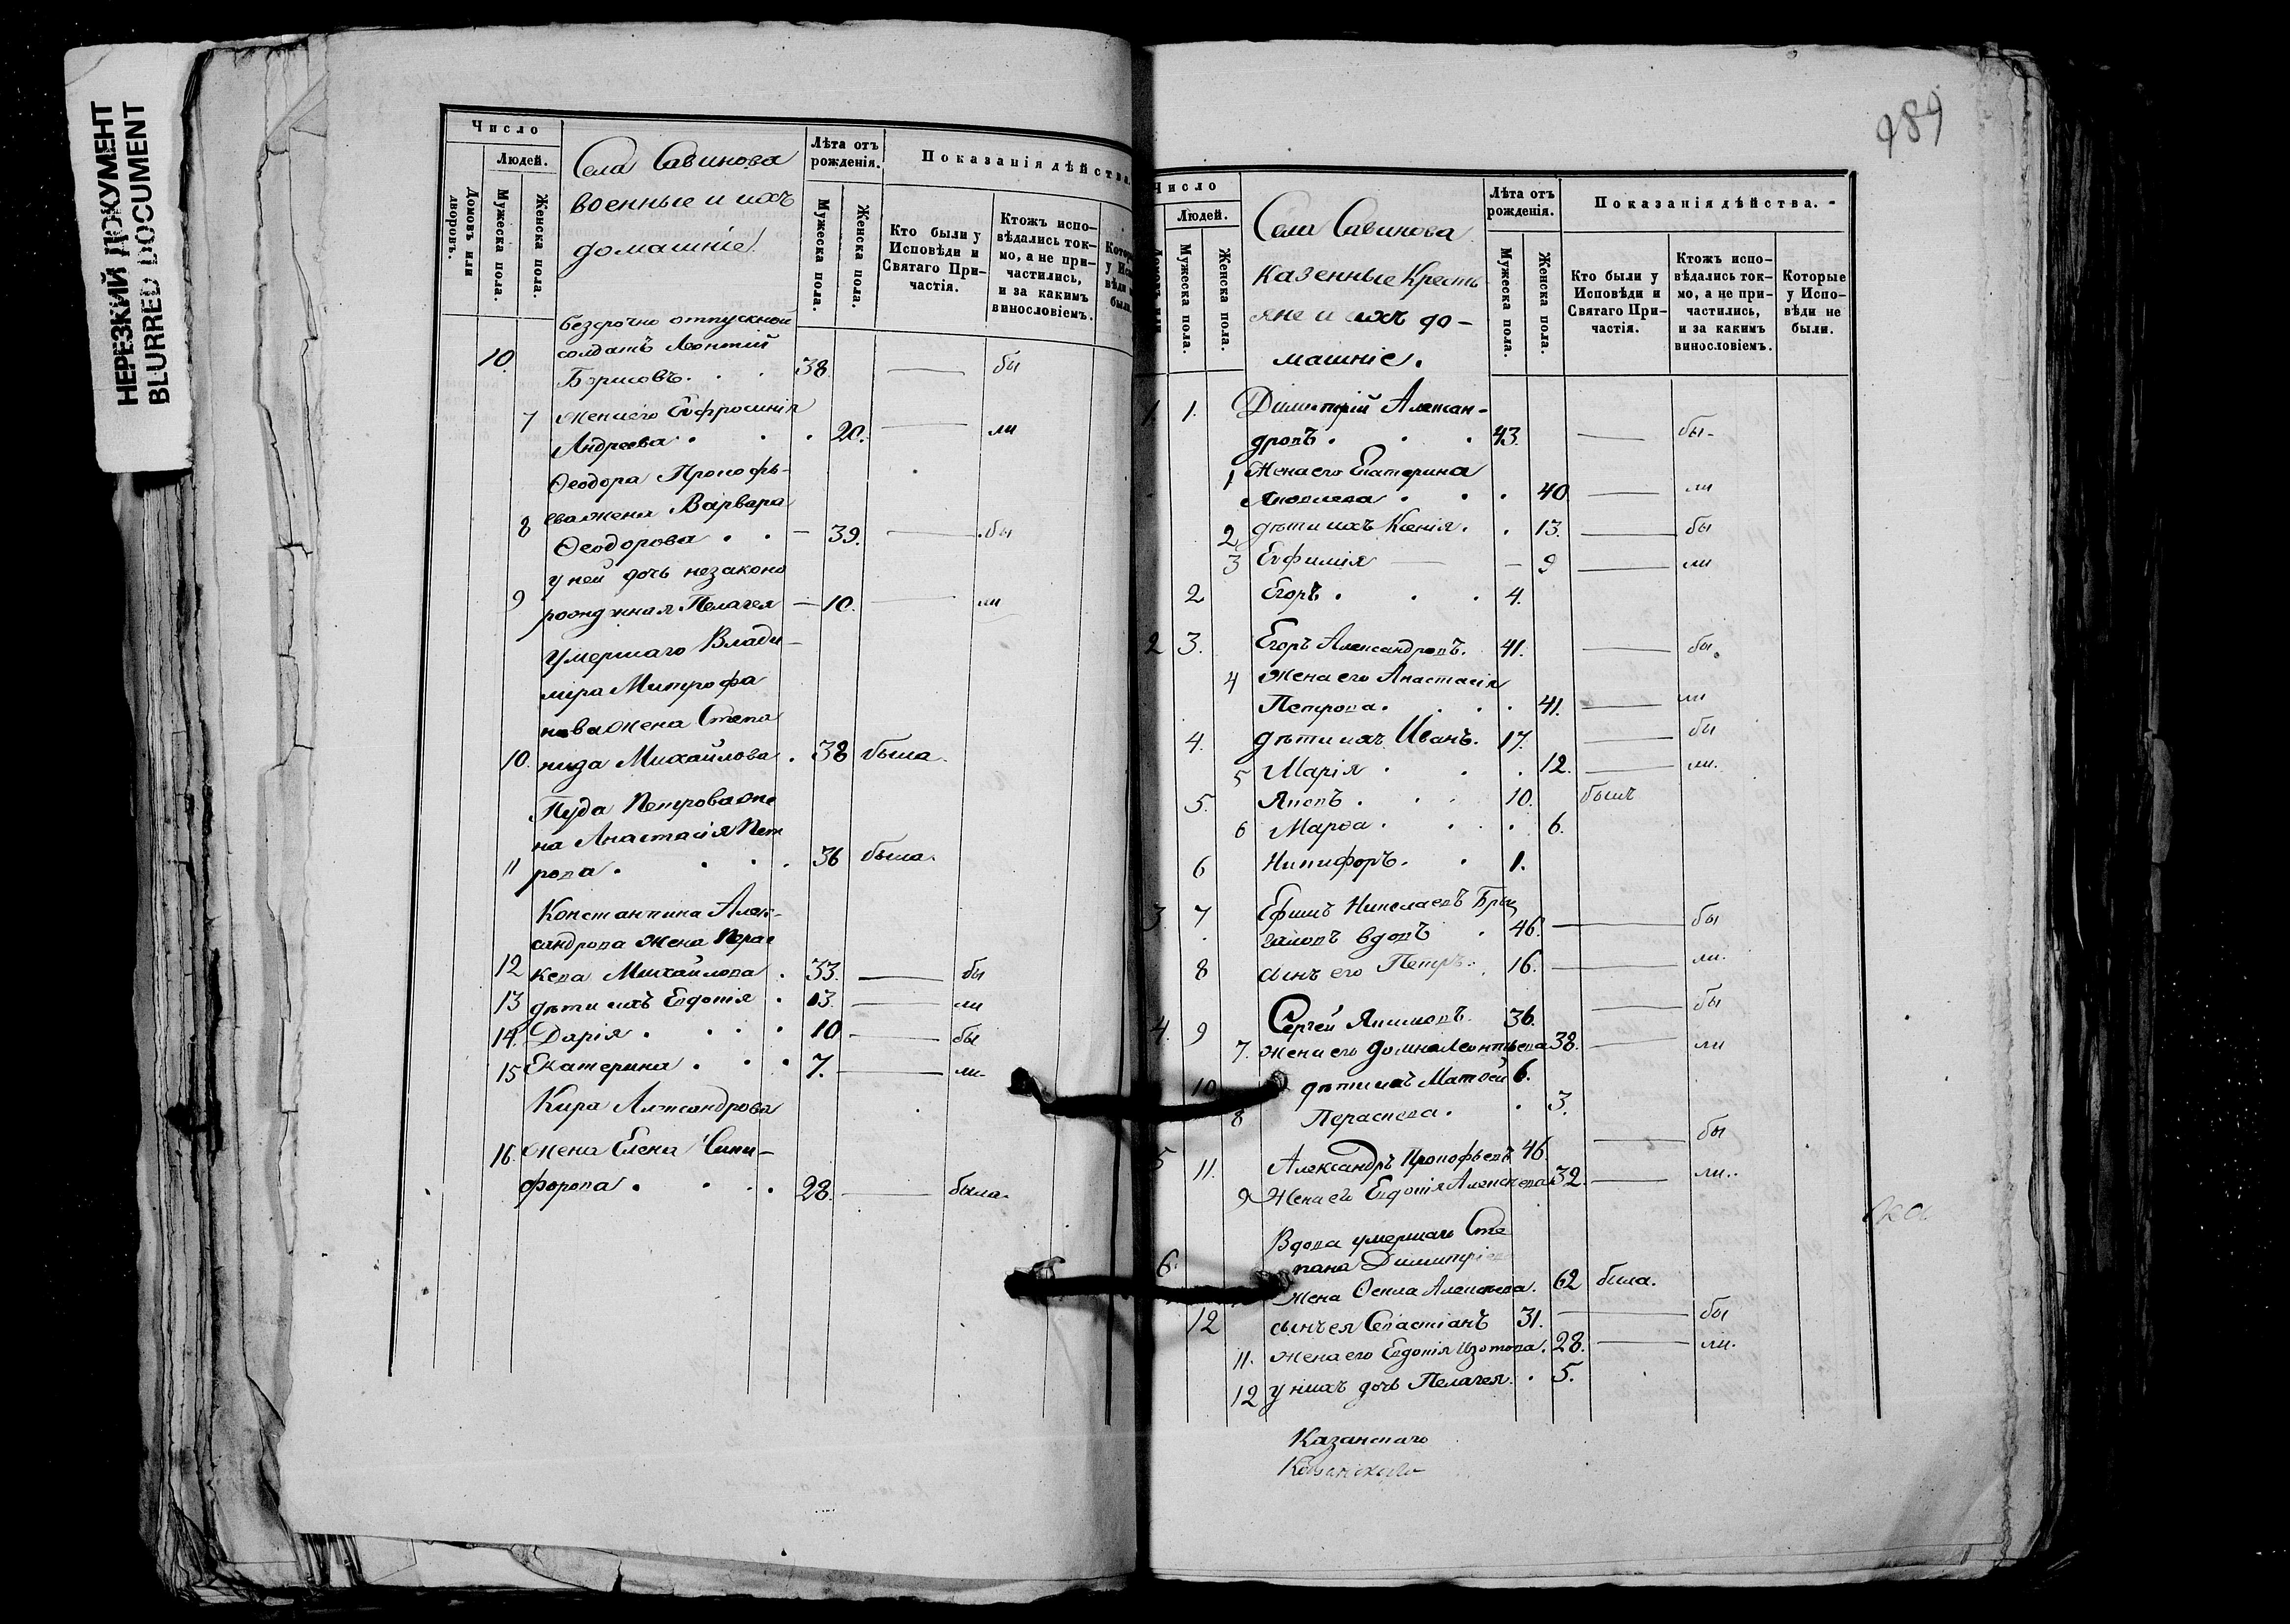 НЕРЕЗКИЙ ДОКУМЕНТ
BLURRED DOCUMENT
Число
Людей.
Домовъ или дворовъ.
Мужеска пола.
Женска пола.
Села Савинова
военные и ихъ
домашніе.
Лѣта отъ рожденія.
Мужеска пола.
Женска пола.
Показанія дѣйства.
Кто были у Исповѣди и Святаго Причастія.
Ктожъ исповѣдались токмо, а не причастились, и за какимъ винословіемъ.
безсрочно отпускной
солдатъ Леонтій
10. Борисовъ. 38. бы
7 жена его Евфросинія
Андреева 20. ли
Ѳеодора Прокофь-
ева жена Варвара
8 Ѳеодорова 39. бы
у ней дочь незаконо
9 рожденная Пелагея 10. ли
Умершаго Влади-
міра Митрофа
нова жена Степа
10. нида Михайлова 38 была.
Пуда Петрова же
на Анастасія Пет
11 рова 36 была.
Константина Алек-
сандрова жена Парас
12 кева Михайлова 33. бы
13 дѣти ихъ Евдокія 13 ли
14. Дарія 10 бы
15 Екатерина 7. ли.
Кира Александрова
16. жена Елена Ники-
форова 28. была.
989
Число
Людей.
Мужеска пола.
Женска пола.
Села Савинова
казенные Кресть
яне и ихъ до-
машніе.
Лѣта отъ рожденія.
Мужеска пола.
Женска пола.
Показанія дѣйства.
Кто были у Исповѣди и Святаго Причастія.
Ктожъ исповѣдались токмо, а не причастились, и за какимъ винословіемъ.
Которые у Исповѣди не были.
1. 1. Димитрій Алексан-
дровъ 43. бы-
1 Жена его Екатерина
Яковлева 40 ли
2 дѣти ихъ Ксенія. 13. бы
3 Евфимія 9 ли
2 Егоръ 4.
2 3. Егоръ Александровъ. 41. бы
4 жена его Анастасія
Петрова. 41. ли
4. дѣти ихъ Иванъ. 17. бы
5 Марія 12. ли.
5. Яковъ. 10. былъ
6 Марѳа. 6.
6 Никифоръ. 1.
3 7 Ефимъ Николаевъ
вдовъ 46. бы
8 сынъ его Петръ. 16. ли.
4. 9 Сергей Якимовъ. 36. бы
7. жена его Домна Леонтьева 38. ли
10 дѣти ихъ Матвей 6.
8 Параскева. 3.
5 11. Александръ Прокофьевъ 46. бы
9 Жена его Евдокія Алексеева 32. ли.
Вдова умершаго Сте
6. пана Димитріева
жена Ѳекла Алексеева. 62 была.
12 сынъ ея Севастіанъ 31. бы
11. жена его Евдокія Изотова. 28. ли.
12 у нихъ дочь Пелагея. 5.
Казанскаго
Казанскаго